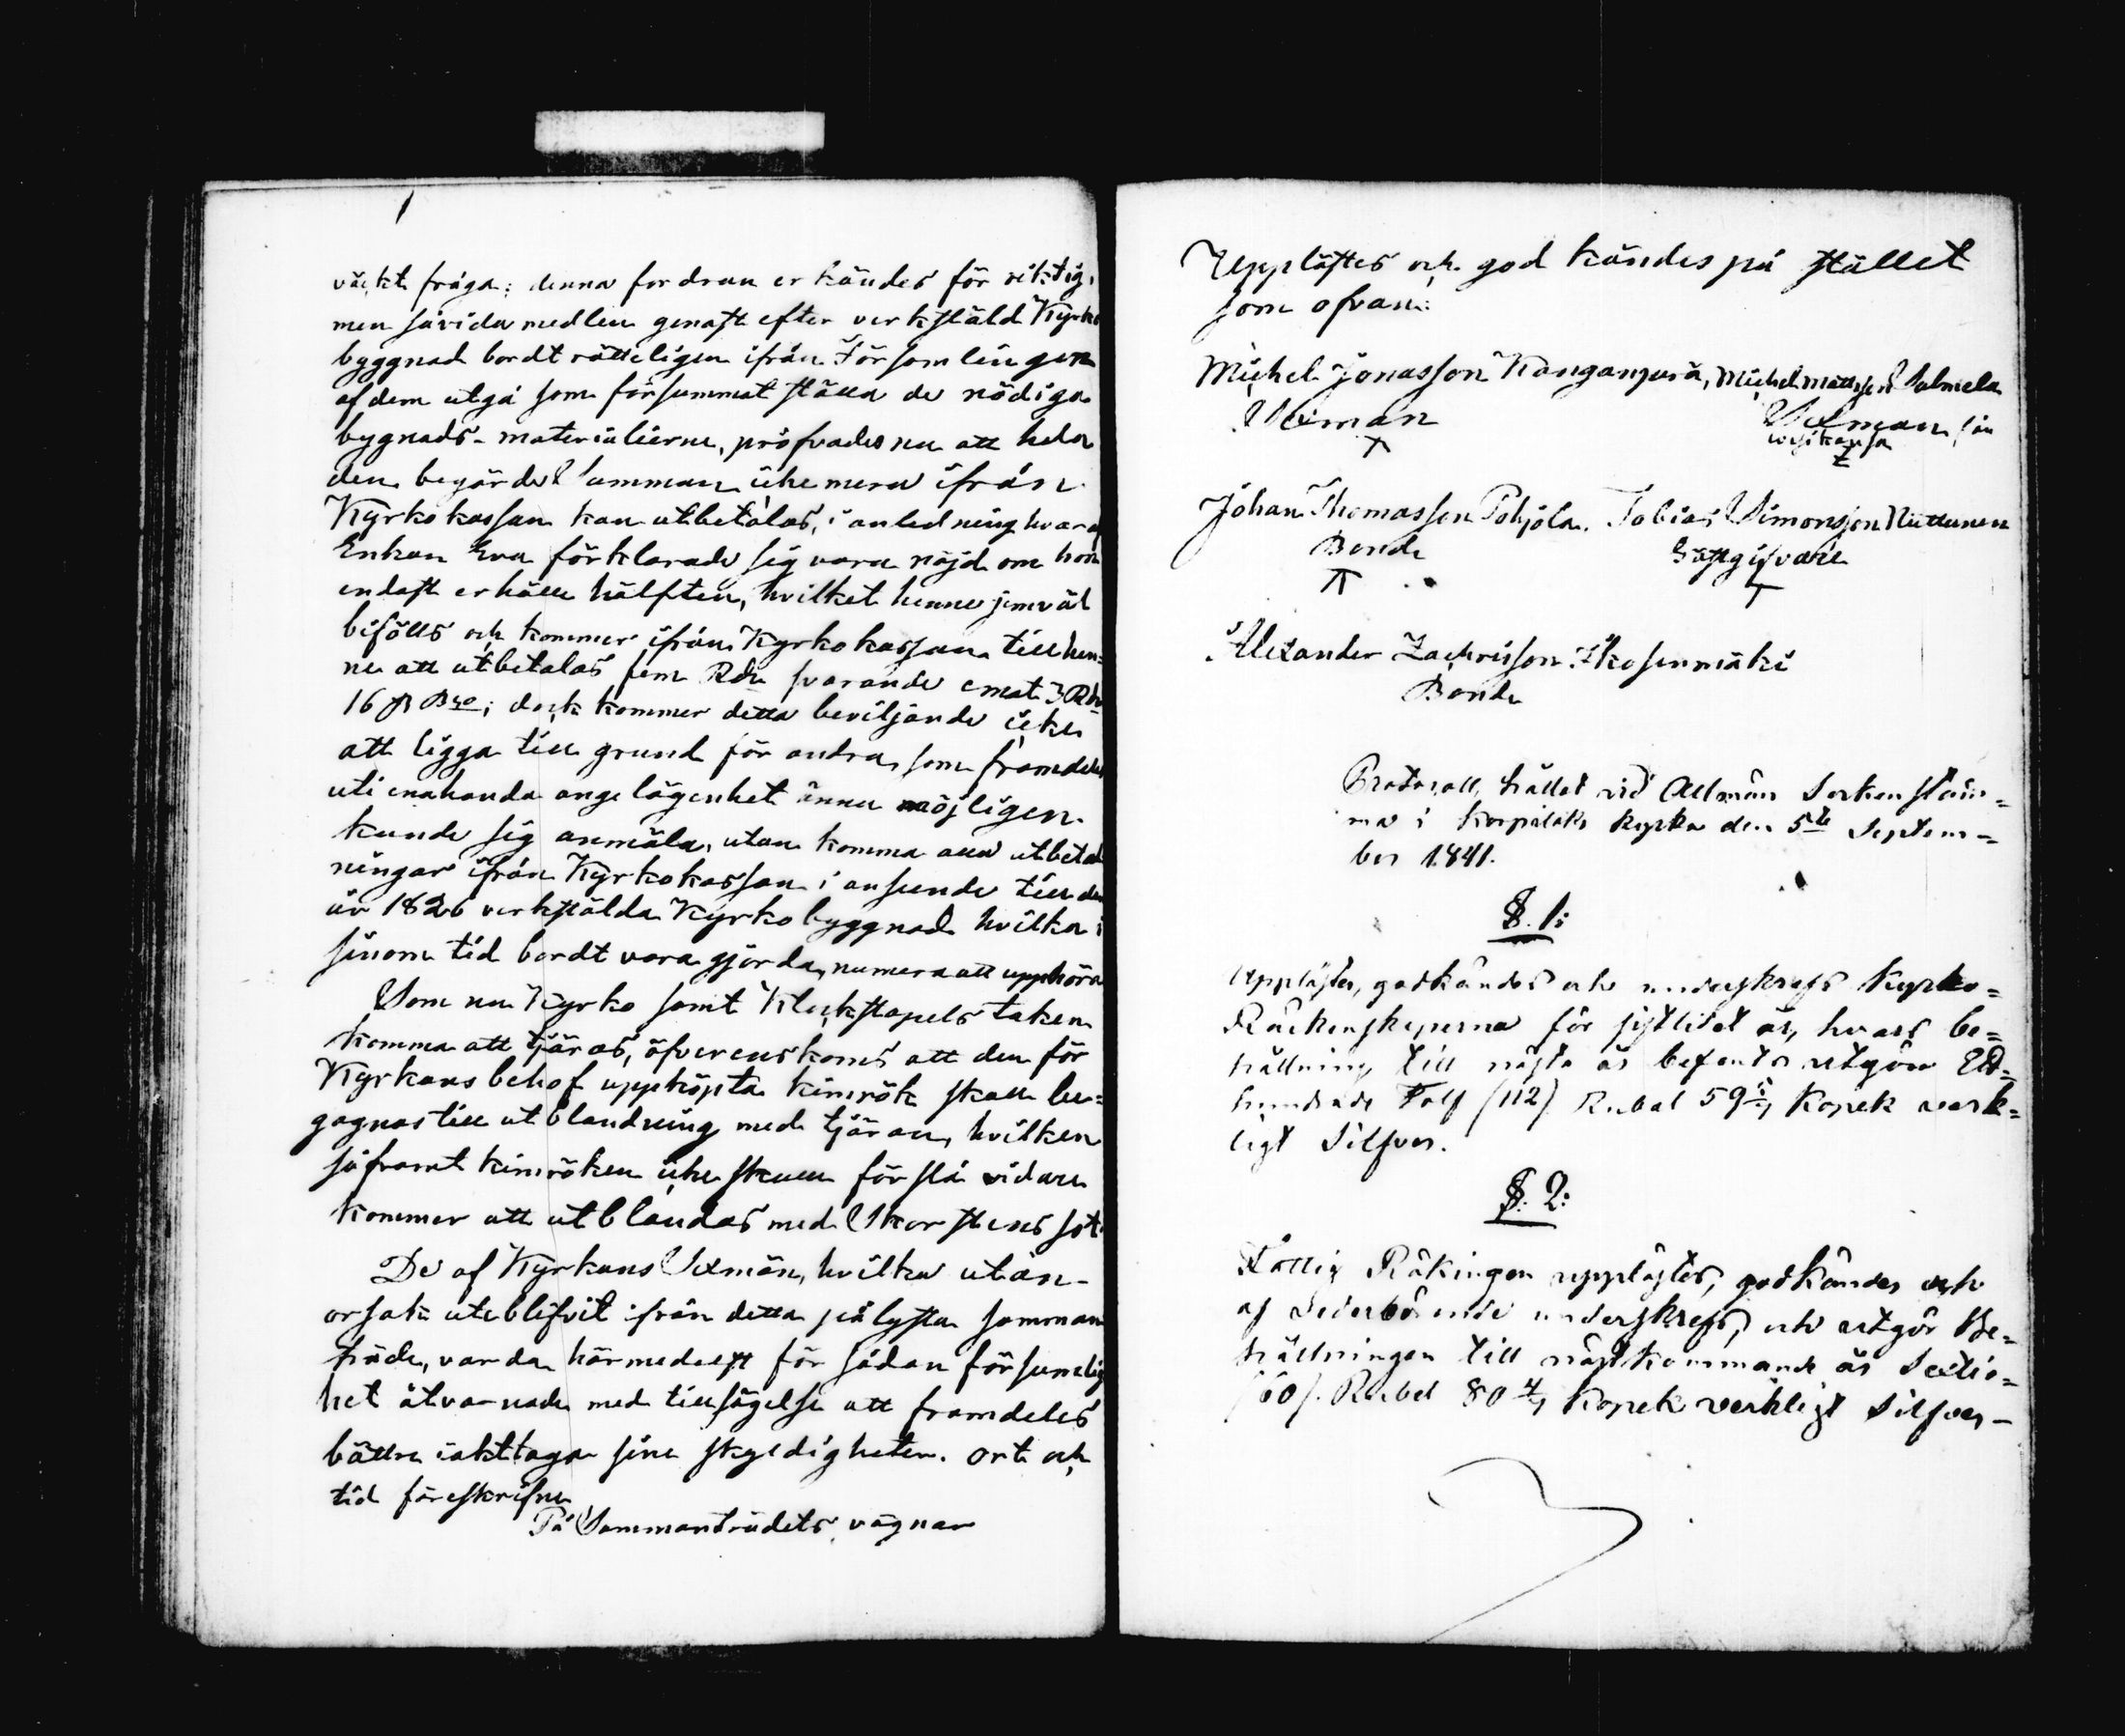 väckt fråga; denna fordran erkändes för riktig,
men såvida medlen genast efter verkstäld Kyrko
byggnad bordt rätteligen ifrån Församlingen
af dem utgå som försummat ställa de nödiga
bygnads-materialierne, pröfvades nu att hela
den begärde Summan icke mera ifrån
Kyrkokassan kan utbetalas, i anledning hvaraf
Enkan Eva förklarade sig vara nöjd om hon
endast erhålle hälften, hvilket henne jemväl
bifölls och kommer ifrån Kyrkokassan till hen=
ne att utbetalas fem Rdr svarande emot 3 Rbr
16 β Bco; dock kommer detta beviljande icke
att ligga till grund för andra, som framdeles
uti enahanda angelägenhet ännu möjligen
kunde sig anmäla, utan komma alla utbetal
ningar ifrån Kyrkokassan i anseende till den
år 1826 verkstälda Kyrkobyggnad hvilka i
sinom tid bordt vara gjorda, numera att upphöra
Som nu Kyrko samt Klockstapels taken
komma att tjäras, öfverenskoms att den för
Kyrkans behof uppköpta kimrök skall be=
gagnas till utblandning med tjäran, hvilken
såframt kimröken icke skulle förslå vidare
kommer att utblandas med Skorstens sot.
De af Kyrkans Sexmän, hvilka utan-
orsak uteblifvit ifrån detta pålysta samman
träde, varda härmedelst för sådan försumlig
het åtvarnade med tillsägelse att framdeles
bättre iakttaga sine skyldigheter. Ort och
tid föreskrifne
På Sammanträdets vägnar
Upplästes och god kändes på stället
som ofvan:
Michel Jonasson Kangaspera, Michel Mattsson Salmela
Sexman Sexman, från
X
Johan Thomasson Pohjola. Tobias Simonsson Niittunen
Bonde Gästgifvare
Alexander Zachrisson Ihosenmäki
Bonde
Protocoll, hållet vid Allmän Sockenstäm=
ma i Korpilaks kyrka den 5te Septem=
ber 1841.
§. 1:
Upplästes, godkändes och underskrefs Kyrko=
Räkenskaperna för sistlidet år, hvars be=
hållning till nästa år befants utgöra Ett=
hundrade Tolf (112) Rubel 59 Kopek verk=
ligt Silfver.
§. 2:
Fattig Räkingen upplästes, godkändes och
af vederbörande underskrefs, och utgör Be=
hållningen till nästkommande år Sextio=
(60). Rubel 80 Kopek verkligt Silfver-